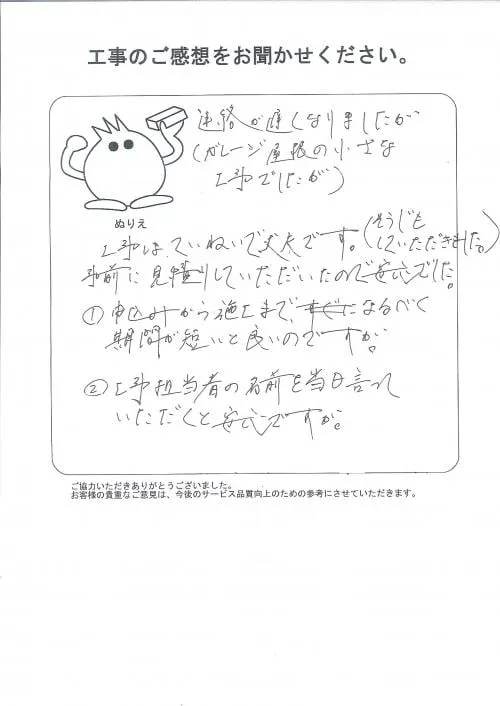 工事のご感想をお聞かせください。
連絡が遅くなりましたが
(ガレージ屋根の小さな
工事でしたが)
ぬりえ
工事は、ていねいで丈夫です。(そうじも
していただきました。)
事前に見積りしていただいたので安心でした。
①申込みからの施工まで、すぐになるべく
期間が短いと良いのですが。
②工事担当者の名前を当日言って
いただくと安心ですが。
ご協力いただきありがとうございました。
お客様の貴重なご意見は、今後のサービス品質向上のための参考にさせていただきます。